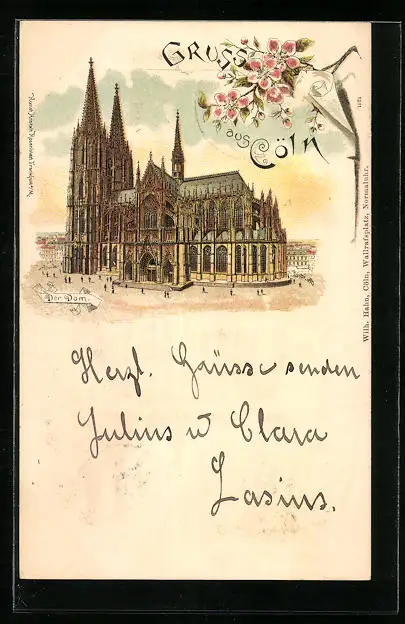 GRUSS
aus CÖLN
1271
Wilh. Hahn, Cöln, Wallrafsplatz, Normaluhr.
Der Dom.
Herzl. Grüsse senden
Julius u Clara
Lasius.